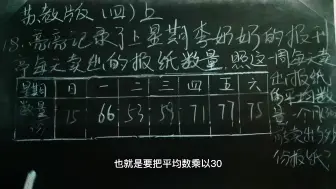 苏教版（四）上
18.亮亮记录了上星期李奶奶的报刊
亭每天卖出的报纸数量.照这一周每天卖
出报纸
的平均数
星期 日 一 二 三 四 五 六
数量 75 66 53 59 71 77 75
份报纸.
也就是要把平均数乘以30